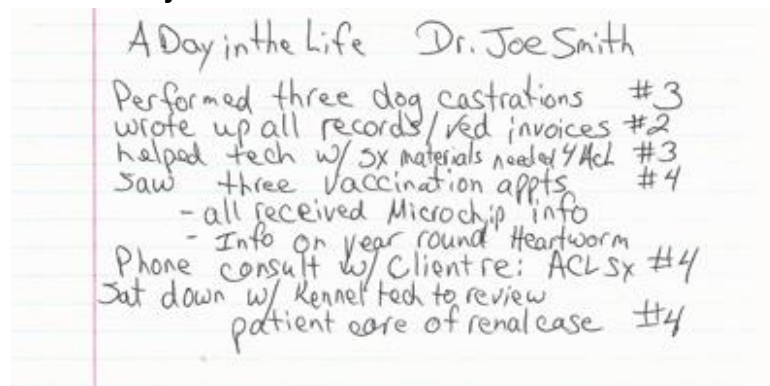 A Day in the Life Dr. Joe Smith
Performed three dog castrations #3
wrote up all records/ved invoices #2
helped tech w/ sx materials needed 4 ACL #3
Saw three Vaccination appts #4
- all received Microchip info
- Info on year round Heartworm
Phone consult w/ Client re: ACL Sx #4
Sat down w/ Kennel tech to review
patient care of renal case #4